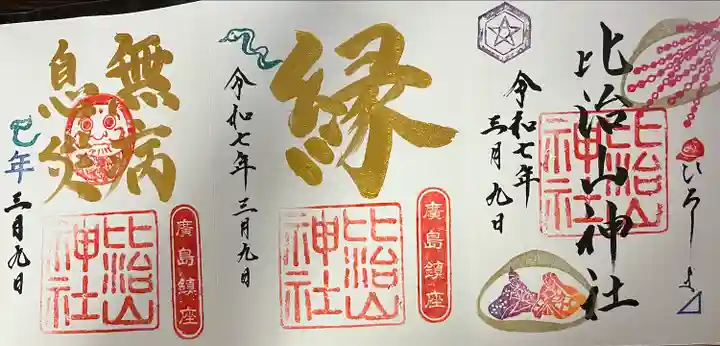 比治山神社
比治山
神社
ひろしま
令和七年
三月九日
縁
令和七年 三月九日
廣島鎮座
比治山
神社
無病
息災
巳年 三月九日
廣島鎮座
比治山
神社